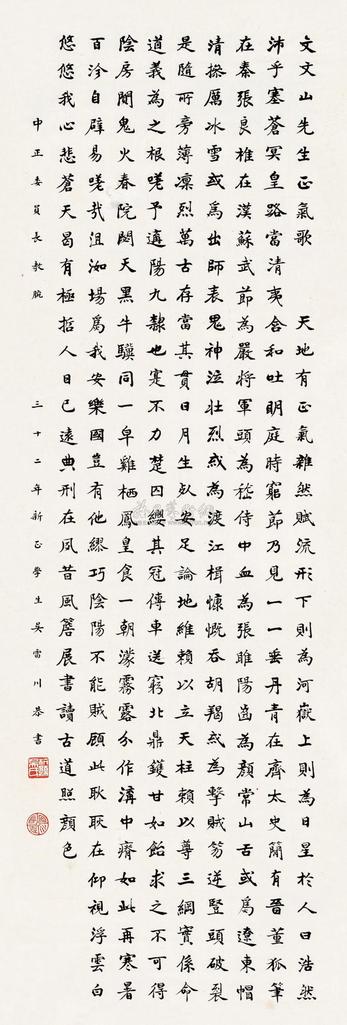 文文山先生正氣歌　天地有正氣雜然賦流形下則為河嶽上則為日星於人曰浩然
沛乎塞蒼冥皇路當清夷含和吐明庭時窮節乃見一一垂丹青在齊太史簡有晉董狐筆
在秦張良椎在漢蘇武節為嚴將軍頭為嵇侍中血為張睢陽齒為顏常山舌或爲遼東帽
清操厲冰雪或爲出師表鬼神泣壯烈或為渡江楫慷慨吞胡羯或為擊賊笏逆豎頭破裂
是隨所旁薄凛烈萬古存當其貫日月生死安足論地維賴以立天柱賴以尊三綱實係命
道義為之根嗟予遘陽九隸也寔不力楚囚纓其冠傳車送窮北鼎鑊甘如飴求之不可得
陰房闃鬼火春院閟天黑牛驥同一皁雞栖鳳皇食一朝濛霧露分作溝中瘠如此再寒暑
百沴自辟易嗟哉沮洳場爲我安樂國豈有他繆巧陰陽不能賊顧此耿耿在仰視浮雲白
悠悠我心悲蒼天曷有極哲人日已遠典刑在夙昔風簷展書讀古道照顏色
中正委員長教腕　三十二年新正學生吳雷川恭書